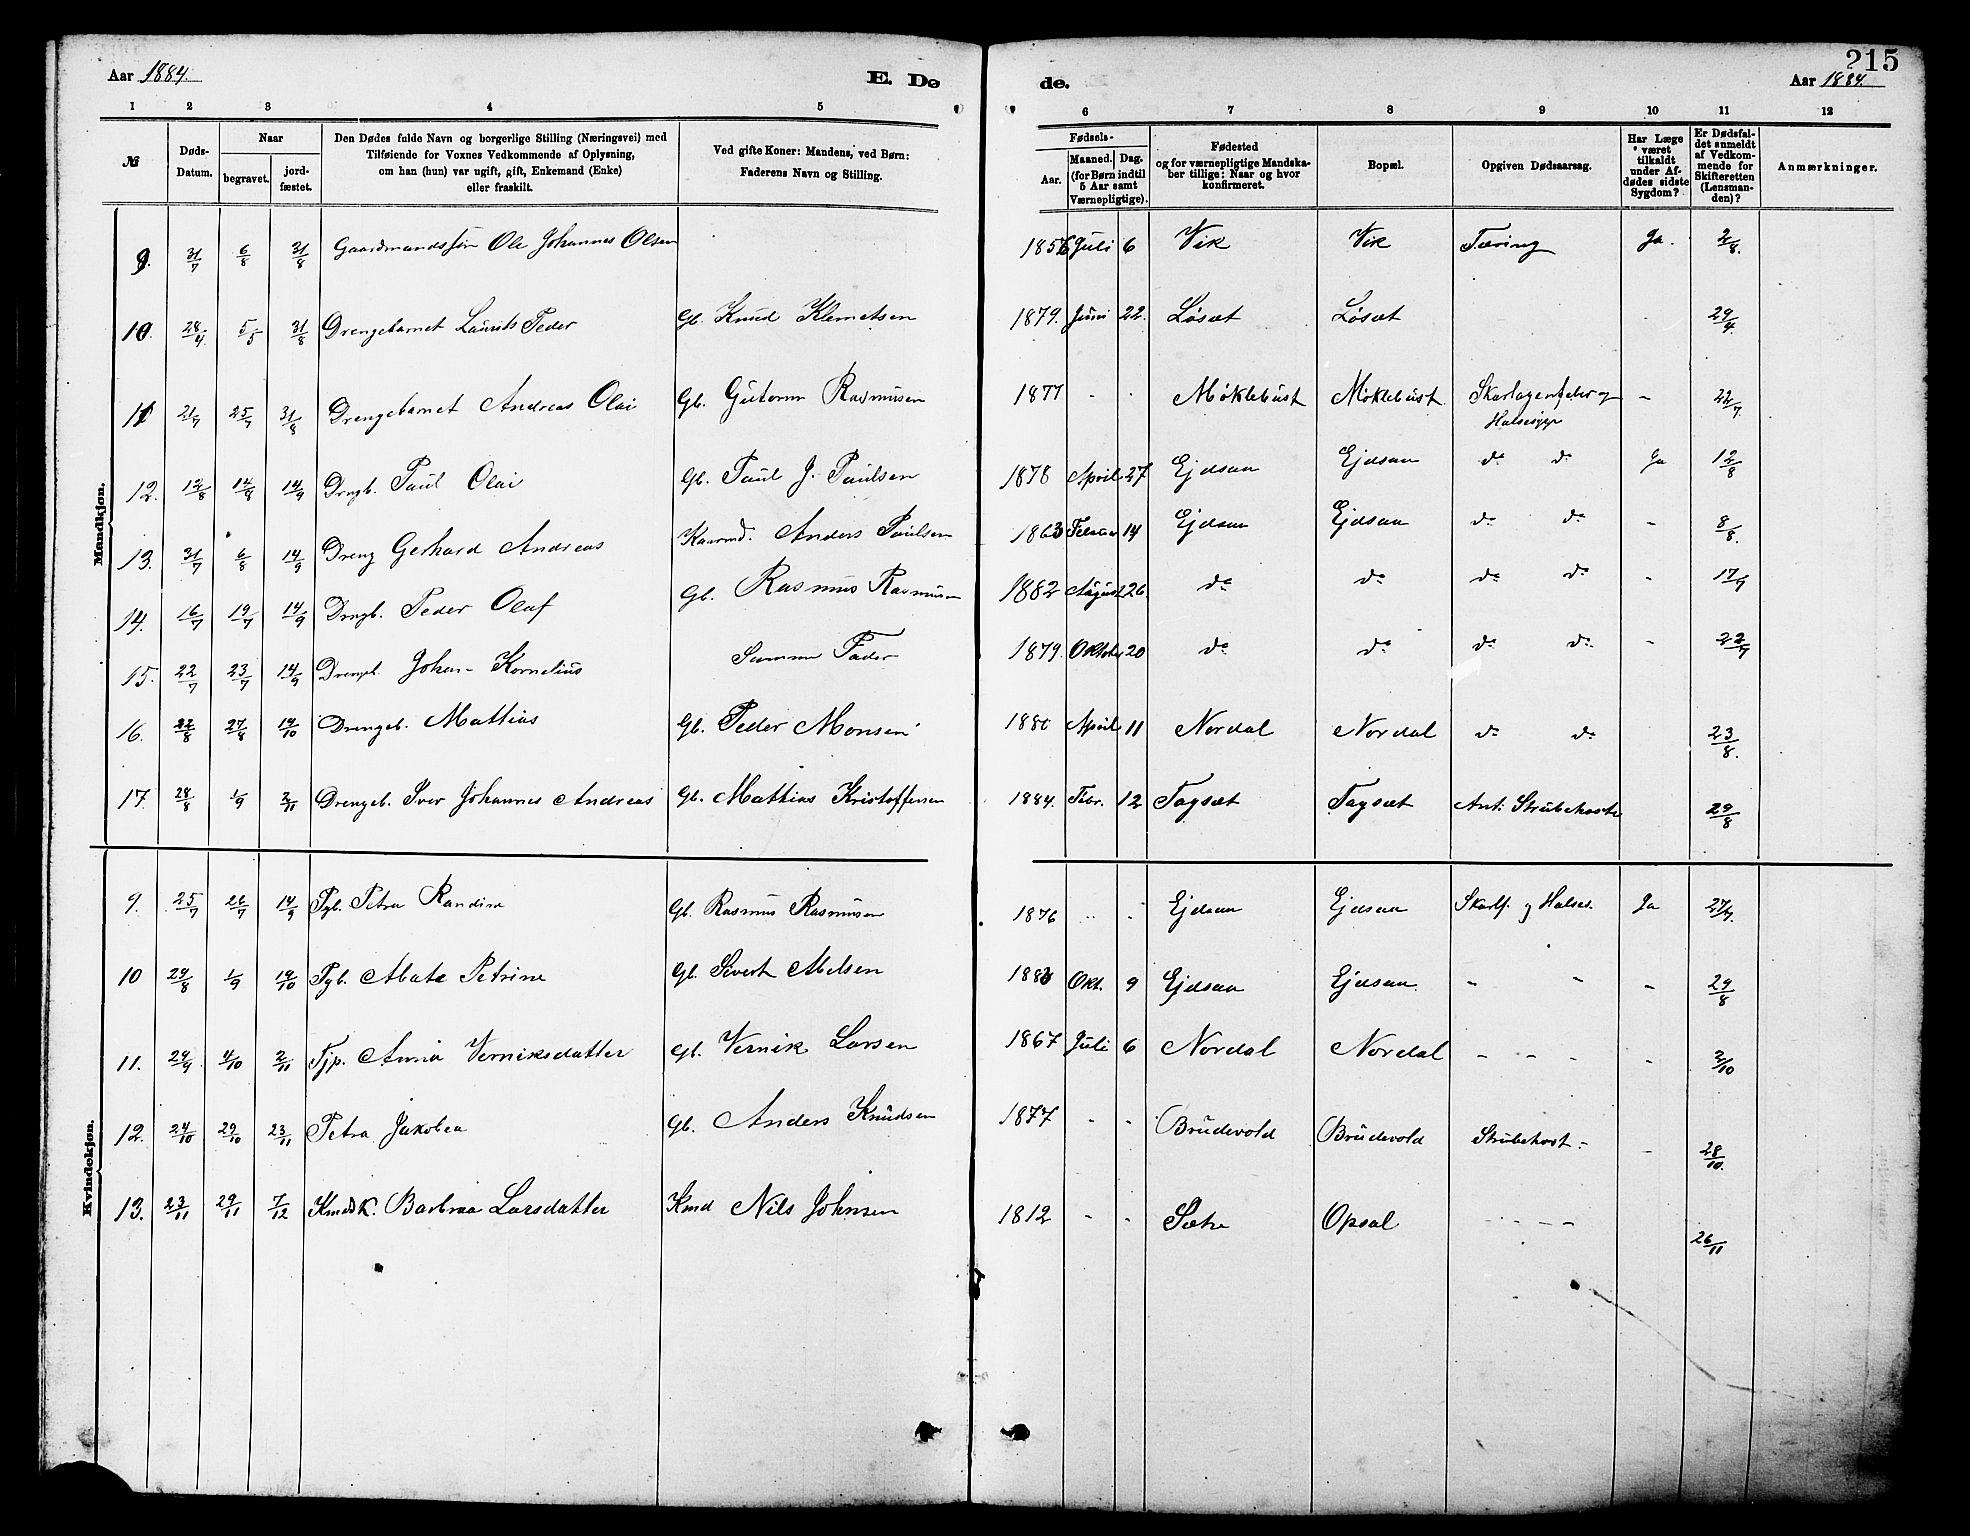 215
Aar 1884.
E. Dø
de.
Aar 1884.
1 2 3 4 5 6 7 8 9 10 11 12
№
Døds-Datum.
Naar
begravet.
jord-fæstet.
Den Dødes fulde Navn og borgerlige Stilling (Næringsvei) med
Tilføiende for Voxnes Vedkommende af Oplysning,
om han (hun) var ugift, gift, Enkemand (Enke)
eller fraskilt.
Ved gifte Koner: Mandens, ved Børn:
Faderens Navn og Stilling.
Fødsels-
Aar.
Maaned. Dag.
(for Børn indtil
5 Aar samt
Værnepligtige).
Fødested
og for værnepligtige Mandska-
ber tillige: Naar og hvor
konfirmeret.
Bopæl.
Opgiven Dødsaarsag.
Har Læge
været
tilkaldt
under Af-
dødes sidste
Sygdom?
Er Dødsfal-
det anmeldt
af Vedkom-
mende for
Skifteretten
(Lensman-
den)?
Anmærkninger.
Mandkjøn.
9. 31/7 6/8 31/8 Gaardmandssøn Ole Johannes Olsen 1856 Juli 6 Vik Vik Tæring Ja. 2/8.
10. 28/4 5/5 31/8 Drengebarnet Laurits Peder Gb. Knud Klemetsen 1879. Juni 22. Løsæt Løsæt - 29/4.
11 21/7 25/7 31/8 Drengebarnet Andreas Olai Gb. Gutorm Rasmusen 1877 - - Møklebust Møklebust Skarlagensfeber og Halsesyge - 22/7.
12. 12/8 14/8 14/9 Drngb. Paul Olai Gb. Paul J. Paulsen 1878 April 27 Ejdsaa Ejdsaa do do Ja 12/8
13. 31/7 6/8 14/9 Dreng Gerhard Andreas Kaarmd. Anders Paulsen 1863 Februar 14 Ejdsaa Ejdsaa do do - 8/8.
14. 16/7 19/7 14/9 Drngb. Peder Olaf Gb. Rasmus Rasmusen 1882 August 26. do do do do - 17/7
15. 22/7 23/7 14/9 Drengeb. Johan Kornelius Samme Fader 1879. Oktober 20 do do do do - 22/7
16. 22/8 27/8 19/10 Drengeb. Mattias Gb. Peder Monsen 1880 April 11 Nordal Nordal do do 23/8.
17. 28/8 1/9 2/11 Drengeb. Iver Johannes Andreas Gb. Mattias Kristoffersen 1884. Febr. 12 Tagsæt Tagsæt Ant. Strubehoste 29/8
Kvindekjøn.
9. 25/7 26/7 14/9 Pgb. Petra Randine Gb. Rasmus Rasmusen 1876 - - Ejdsaa Ejdsaa Skarlf. og Halses. Ja 27/7.
10 29/8 1/9 19/10 Pgb. Mata Petrine Gb. Sivert Melsen 1880 Okt. 9 Ejdsaa Ejdsaa. - - - 29/8
11. 29/9 4/10 2/11 Tjp. Anna Verniksdatter Gb. Vernik Larsen 1867 Juli 6 Nordal Nordal - - - - 2/10
12. 24/10 29/10 23/11 Petra Jakobea Gb. Anders Knudsen 1877 - - Brudevold Brudevold Strubehost - - 28/10.
13. 23/11 29/11 7/12 Barbraa Larsdatter Kmd Nils Johnsen 1812 - - Sætre Opsal - - - - 26/11